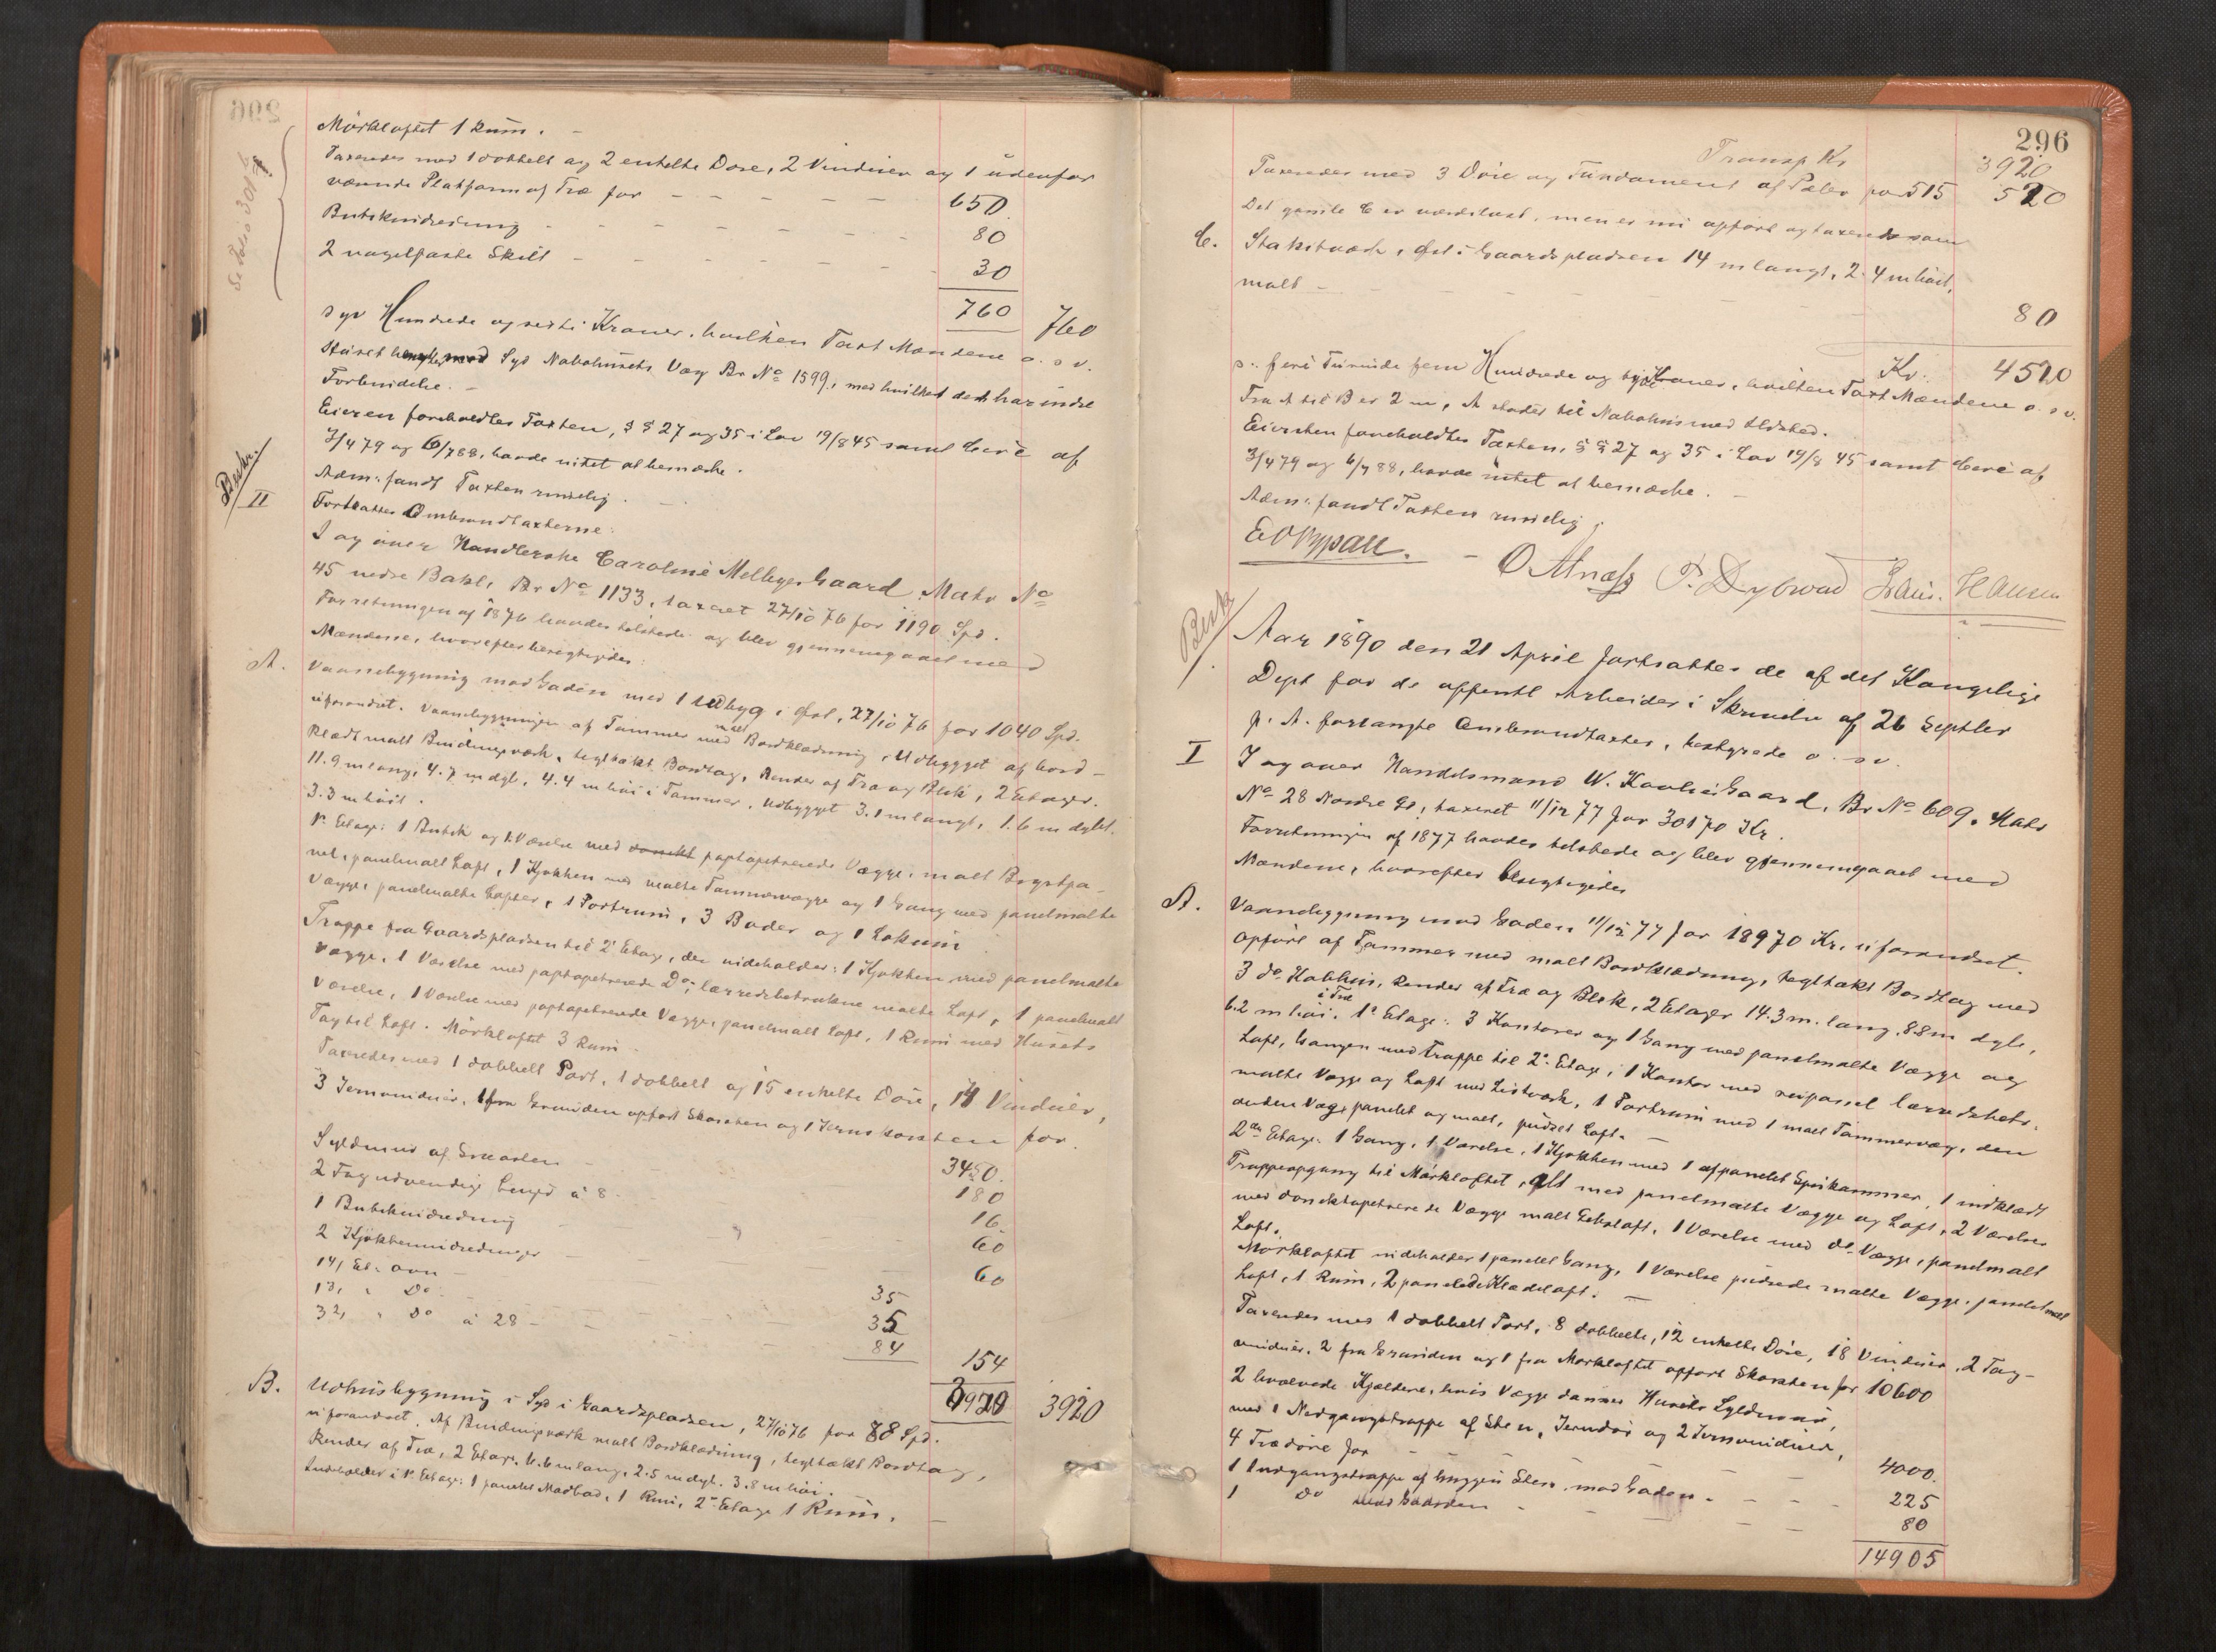 Mörkloftet 1 Rum.
Taxeredes med 1 dobbelt og 2 enkelte Döre, 2 Vinduer og 1 udenfor
værende Platform af Træ for 650.
Butikindredning 80
2 nagelfaste Skilt 30
760 760
syv Hundrede og sexti Kroner, hvilken Taxt Mændene o. s. v.
Huset mod Syd Nabohusets Væg Br No 1599, med hvilket det har indre
Forbindelse.
Eieren foreholdtes Taxten, §§ 27 og 35 i Lov 19/8 45 samt Circ af
3/4 79 og 6/7 88, havde intet at bemærke.
Adm: fandt Taxten rimelig.
Beskr.
II
Fortsattes Ombrandtaxterne:
I og over Handlerske Caroline Mellbyes Gaard, Matr No
45 nedre Bakl. Br No 1133, taxeret 27/10 76 for 1190 Spd.
Forretningen af 1876 havdes tilstede og blev gjennemgaaet med
Mændene, hvorefter besigtigedes:
A. Vaanebygning mod Gaden med 1 udbyg i Öst, 27/10 76 for 1040 Spd.
uforandret. Vaanebygningen af Tømmer med malt Bordklædning, Udbygget af bord-
klædt malt Bindingsværk, tegltækt Bordtag, Render af Træ og Blik, 2 Etager.
11.9 m lang, 4.7 m dyb, 4.4 m höi i Tømmer, Udbygget 3.1 m langt, 1.6 m dybt,
3.3 m höit.
1e Etage: 1 Butik og 1 Værelse med papirtapetserede Vægge, malt Brystpa-
nel, panelmalt Loft, 1 Kjøkken med malte Tømmervægge og 1 Gang med panelmalte
Vægge, panelmalte Lofter, 1 Portrum, 3 Boder og 1 Lokum
Trappe fra Gaardspladsen til 2e Etage, der indeholder: 1 Kjøkken med panelmalte
Vægge, 1 Værelse med papirtapetserede Do, lærredsbetrukne malte Loft, 1 panelmalt
Værelse, 1 Værelse med papirtapetserede Vægge, panelmalt Loft, 1 Rum med Husets
Tag til Loft. Mörkloftet 3 Rum.
Taxeredes med 1 dobbelt Port, 1 dobbelt og 15 enkelte Döre, 14 Vinduer,
3 Jernvinduer, 1 fra Grunden opført Skorsten og 1 Jernskorsten for
3450.
Syldmur af Graasten 180
2 Fag udvendige à 8 16
1 Butikindredning 60
2 Kjøkkenindredninger 60
14, Et. ovn 35
13, " Do 35
32, " Do à 28 84
154
3920 3920
B. Udhusbygning i Syd i Gaardspladsen, 27/10 76 for 88 Spd.
uforandret. Af Bindingsværk malt Bordklædning, tegltækt Bordtag,
Render af Træ, 2 Etager. 6.6 m lang, 2.5 m dyb. 3.8 m höi.
Indeholder i 1e Etage: 1 panelet Madbod, 1 Rum, 2e Etage 1 Rum.
Se Folio 301
296
Transp Kr 3920
Taxeredes med 3 Döre og Fundament af Pæler for 515 520
Det gamle C er nedrevet, men er nu opfört og taxeredes som
C. Stakitværk, Öst i Gaardspladsen 14 m langt, 2.4 m höit,
malt 80
Kr. 4520
s. fire Tusinde fem Hundrede og tyve Kroner, hvilken Taxt Mændene o. s. v.
Fra A til B er 2 m, A støder til Nabohus med Ildsted.
Eiersken foreholdtes Taxten, §§ 27 og 35 i Lov 19/8 45 samt Circ af
3/4 79 og 6/7 88, havde intet at bemærke.
Adm: fandt Taxten rimelig.
O Alnæs P. Dybwad Hans. Hansen
Beskr
Aar 1890 den 21 April fortsattes de af det Kongelige
Dept for de offentl Arbeider i Skrivelse af 26 Septbr
p. A. forlangte Ombrandtaxter, bestyrede o. s. v.
I I og over Handelsmand W. Gaard, Br No 609, Matr
No 28 Nordre Gd, taxeret 11/12 77 for 30170 Kr.
Forretningen af 1877 havdes tilstede og blev gjennemgaaet med
Mændene, hvorefter besigtigedes
A. Vaanebygning mod Gaden 11/12 77 for 18970 Kr. uforandret.
Opfört af Tømmer med malt Bordklædning, tegltækt Bordtag med
3 do Kobhus, Render af Træ og Blik, 2 Etager 14.3 m. lang, 8.8 m dyb,
6.2 m höi i Træ. 1e Etage: 3 Kontorer og 1 Gang med panelmalte Vægge og
Loft, Gangen med Trappe til 2e Etage, 1 Kontor med lærredsbetr.
malte Vægge og Loft med Listværk, 1 Portrum med 1 malt Tømmervæg, den
anden Væg panelet og malt, pudset Loft.
2den Etage: 1 Gang, 1 Værelse, 1 Kjøkken med 1 afpanelet Spiskammer, 1 indklædt
Trappeopgang til Mörkloftet, alt med panelmalte Vægge og Loft, 2 Værelser
med tapetserede Vægge malt Gibsloft, 1 Værelse med do Vægge, panelmalt
Loft.
Mörkloftet indeholder 1 panelet Gang, 1 Værelse pudsede malte Vægge, panelet malt
Loft, 1 Rum, 2 panelede Klædeloft.
Taxeredes med 1 dobbelt Port, 8 dobbelte, 12 enkelte Döre, 18 Vinduer, 2 Tag-
vinduer, 2 fra Grunden og 1 fra Mörkloftet opfört Skorsten for 10600
2 hvælvede Kjældere, hvis Vægge danner Husets Syldmur,
med 1 Nedgangstrappe af Sten, Jerndör og 2 Jernvinduer,
4 Trædöre for 4000.
1 Indgangstrappe af huggen Sten mod Gaden 225
1 Do mod Gaarden 80
14905